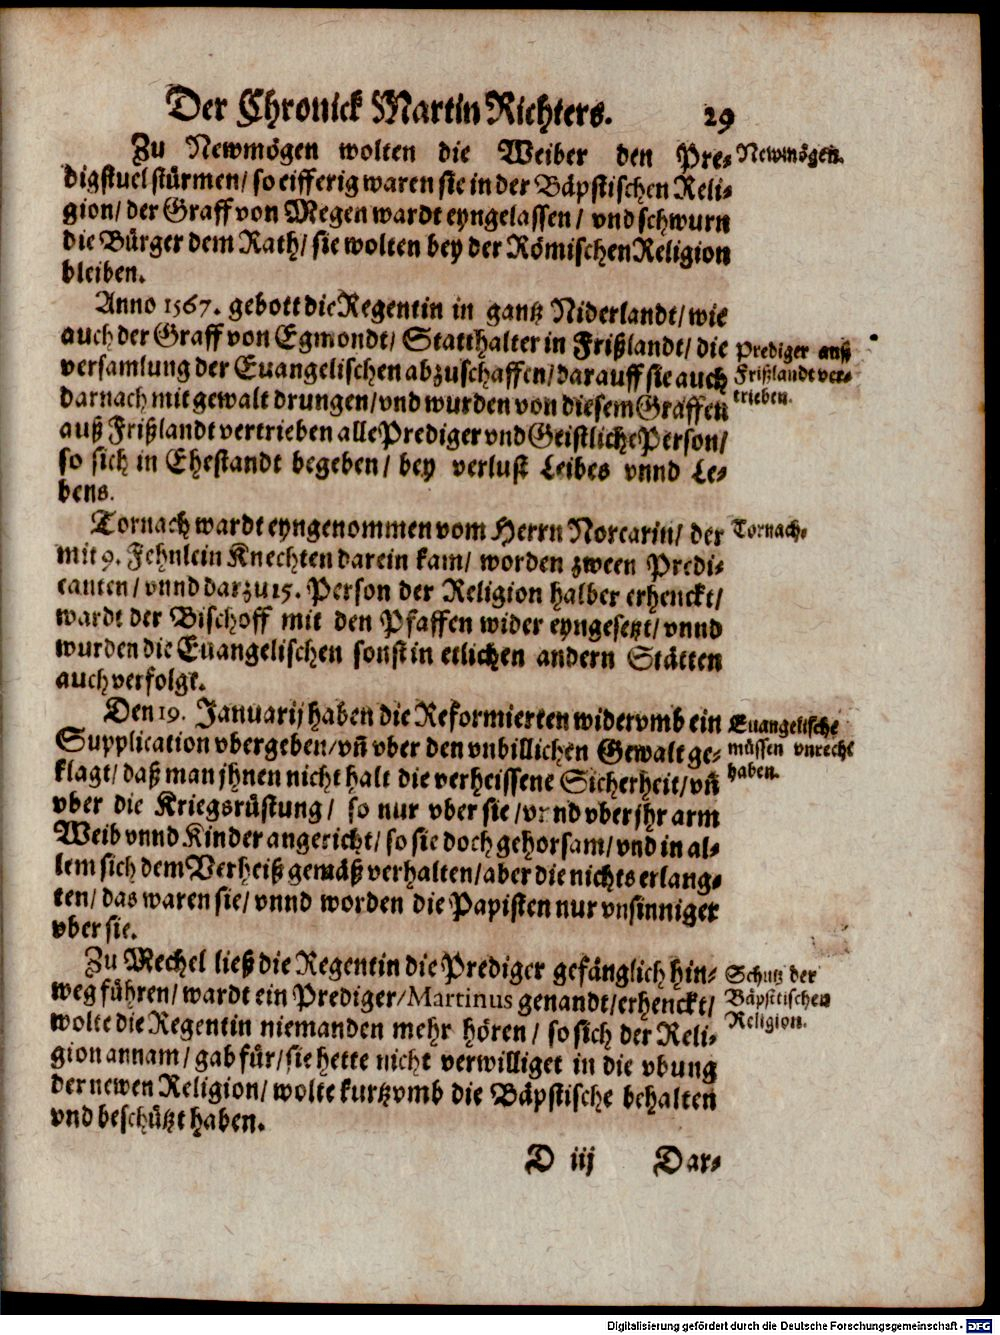 Der Chronick Martin Richters. 29
Zu Newmögen wolten die Weiber den Pre-
digstuel stürmen/ so eifferig waren sie in der Bäpstischen Reli-
gion/ der Graff von Megen wardt eyngelassen/ vnd schwurn
die Bürger dem Rath/ sie wolten bey der Römischen Religion
bleiben.
Newmögen.
Anno 1567. gebott die Regentin in gantz Niderlandt/ wie
auch der Graff von Egmondt/ Statthalter in Frißlandt/ die
versamlung der Euangelischen abzuschaffen/ darauff sie auch
darnach mit gewalt drungen/ vnd wurden von diesem Graffen
auß Frißlandt vertrieben alle Prediger vnd Geistliche Person/
so sich in Ehestandt begeben/ bey verlust Leibes vnnd Le-
bens.
Prediger auß
Frißlandt ver-
trieben.
Tornach wardt eyngenommen vom Herrn Norcarin/ der
mit 9. Fehnlein Knechten darein kam/ worden zween Predi-
canten/ vnnd darzu 15. Person der Religion halber erhenckt/
wardt der Bischoff mit den Pfaffen wider eyngesetzt/ vnnd
wurden die Euangelischen sonst in etlichen andern Stätten
auch verfolgt.
Tornach.
Den 19. Januarij haben die Reformierten widervmb ein
Supplication vbergeben/ vn̄ vber den vnbillichen Gewalt ge-
klagt/ daß man jhnen nicht halt die verheissene Sicherheit/ vn̄
vber die Kriegsrüstung/ so nur vber sie/ vnnd vber jhr arm
Weib vnnd Kinder angericht/ so sie doch gehorsam/ vnd in al-
lem sich dem Verheiß gemäß verhalten/ aber die nichts erlang-
ten/ das waren sie/ vnnd worden die Papisten nur vnsinniger
vber sie.
Euangelische
müssen vnrecht
haben.
Zu Mechel ließ die Regentin die Prediger gefänglich hin-
weg führen/ wardt ein Prediger/ Martinus genandt/ erhenckt/
wolte die Regentin niemanden mehr hören/ so sich der Reli-
gion annam/ gab für/ sie hette nicht verwilliget in die vbung
der newen Religion/ wolte kurtzvmb die Bäpstische behalten
vnd beschützt haben.
Schutz der
Bäpstischen
Religion.
D iij Dar-
Digitalisierung gefördert durch die Deutsche Forschungsgemeinschaft - DFG